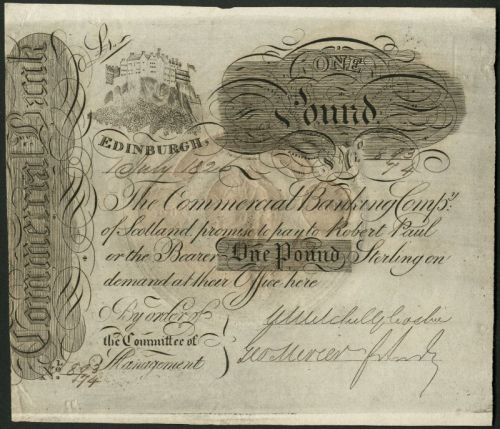 Commercial Bank
ONE
Pound
EDINBURGH,
1 July 182
No. 893
74
The Commercial Banking Compy.
of Scotland, promise to pay to Robert Paul
or the Bearer One Pound Sterling on
demand at their Office here
By order of
the Committee of
Management
Geo Mercier
No. 893
74